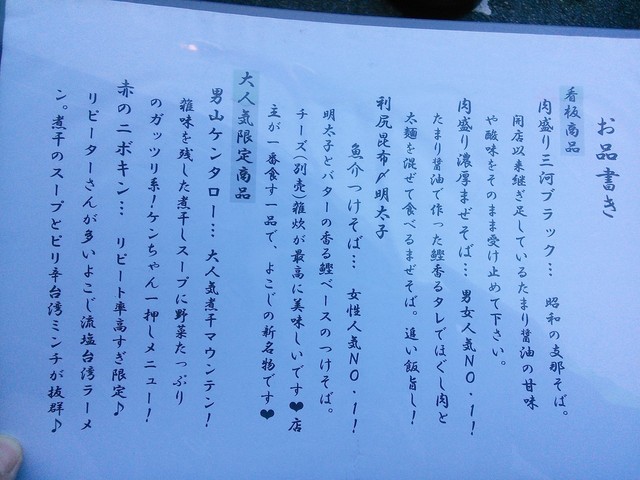 お品書き
看板商品
肉盛り三河ブラック… 昭和の支那そば。
開店以来継ぎ足しているたまり醤油の甘味
や酸味をそのまま受け止めて下さい。
肉盛り濃厚まぜそば… 男女人気NO.1!
たまり醤油で作った鰹香るタレでほぐし肉と
太麺を混ぜて食べるまぜそば。追い飯旨し!
利尻昆布〆明太子
魚介つけそば… 女性人気NO.1!
明太子とバターの香る鰹ベースのつけそば。
チーズ(別売)雑炊が最高に美味しいです❤店
主が一番食す一品で、よこじの新名物です❤
大人気限定商品
男山ケンタロー… 大人気煮干マウンテン!
雑味を残した煮干しスープに野菜たっぷり
のガッツリ系!ケンちゃん一押しメニュー!
赤のニボキン… リピート率高すぎ限定♪
リピーターさんが多いよこじ流塩台湾ラーメ
ン。煮干のスープとピリ辛台湾ミンチが抜群♪